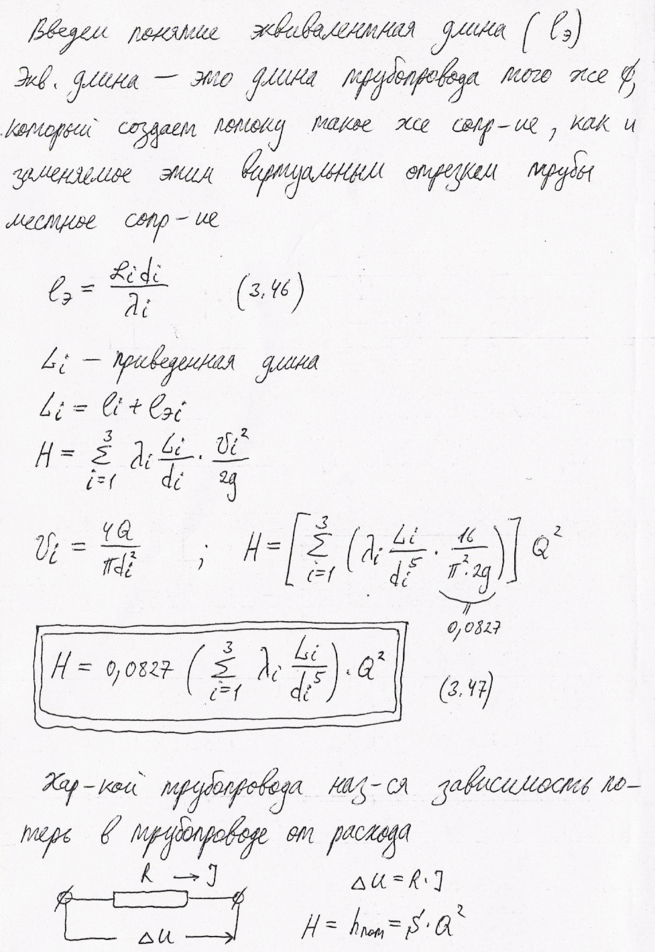 Введем понятие эквивалентная длина (lэ)
Экв. длина – это длина трубопровода того же ϕ,
который создает потоку такое же сопр-ие, как и
заменяемое этим виртуальным отрезком трубы
местное сопр-ие
lэ = ζi di / λi (3.46)
Li – приведенная длина
Li = li + lэi
H = Σ_{i=1}^{3} λi Li/di · vi²/2g
vi = 4Q/πdi² ; H = [Σ_{i=1}^{3} (λi Li/di⁵ · 16/π²·2g)] Q²
0,0827
H = 0,0827 (Σ_{i=1}^{3} λi Li/di⁵) · Q²
(3.47)
Хар-кой трубопровода наз-ся зависимость по-
терь в трубопроводе от расхода
R → J
ΔU = R·J
ΔU
H = hпот = S·Q²